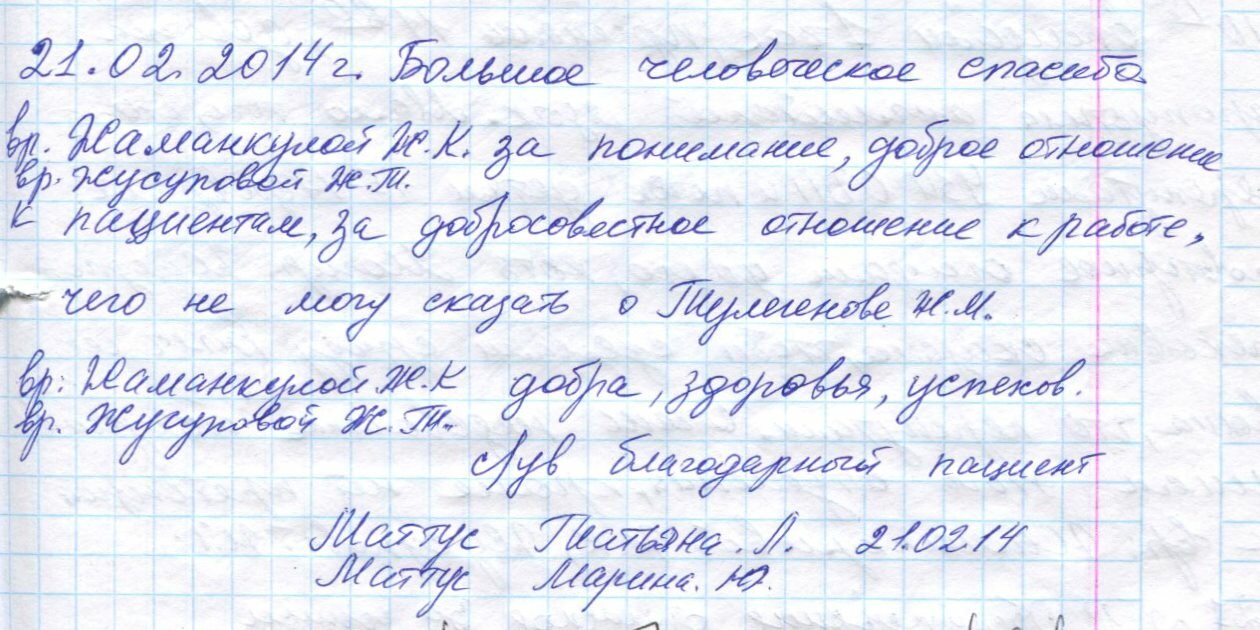 21.02.2014г. Большое человеческое спасибо
вр. Наманкулой Ж.К. за понимание, доброе отношение
вр. Жусуповой Ж.Т.
к пациентам, за добросовестное отношение к работе,
чего не могу сказать о Тулегенове Ж.М.
вр: Наманкулой Ж.К добра, здоровья, успехов.
вр. Жусуповой Ж.Т.
с/ув благодарный пациент
Маттус Татьяна.Л. 21.02.14
Маттус Марина.Ю.